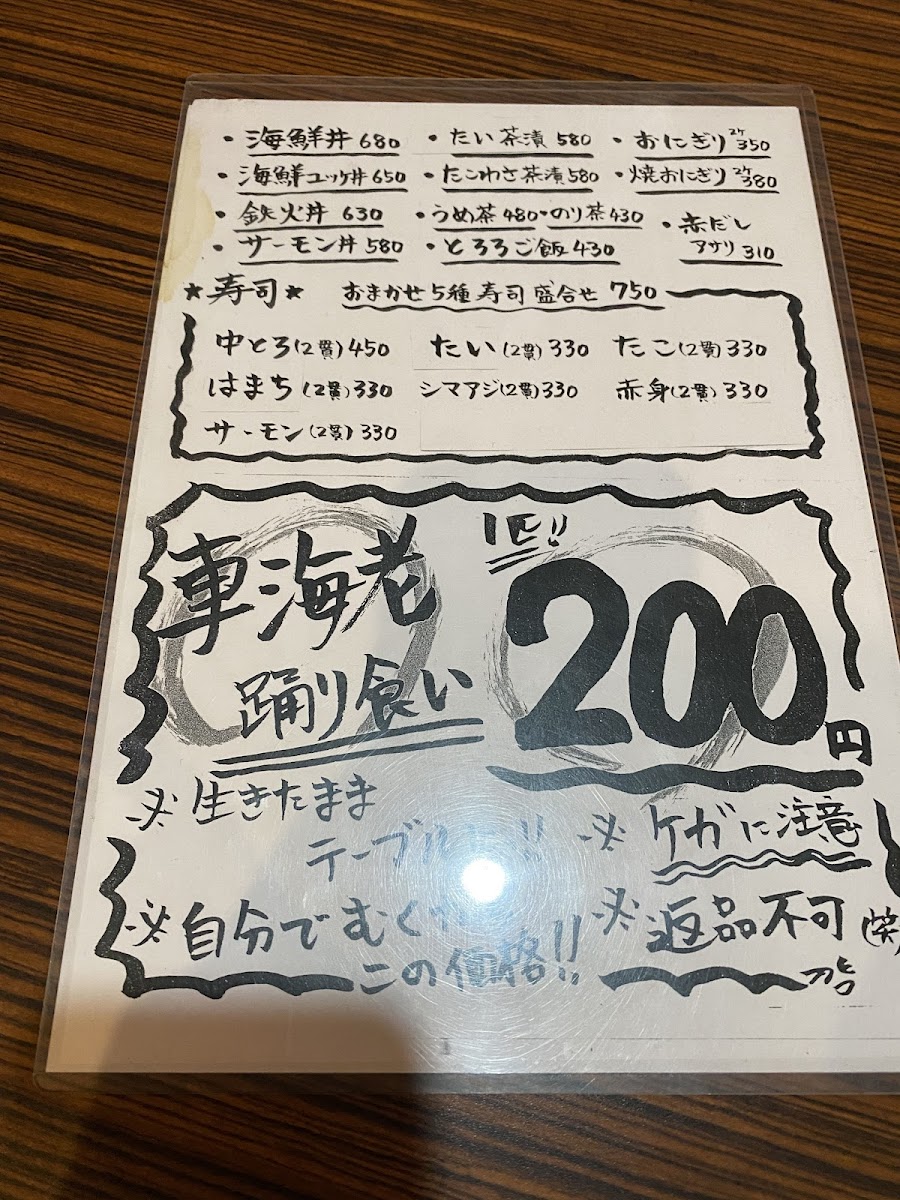 ・海鮮丼 680 ・たい茶漬 580 ・おにぎり2ケ350
・海鮮ユッケ丼 650 ・たこわさ茶漬580 ・焼おにぎり2ケ380
・鉄火丼 630 ・うめ茶480・のり茶430 ・赤だし
・サーモン丼 580 ・とろろご飯430 アサリ 310
★寿司★ おまかせ5種寿司盛合せ 750
中とろ(2貫)450 たい(2貫)330 たこ(2貫)330
はまち(2貫)330 シマアジ(2貫)330 赤身(2貫)330
サーモン(2貫)330
車海老 1匹!!
踊り食い 200円
※生きたまま
テーブル !! ※ケガに注意
※自分でむく ※返品不可(笑)
この価格!!